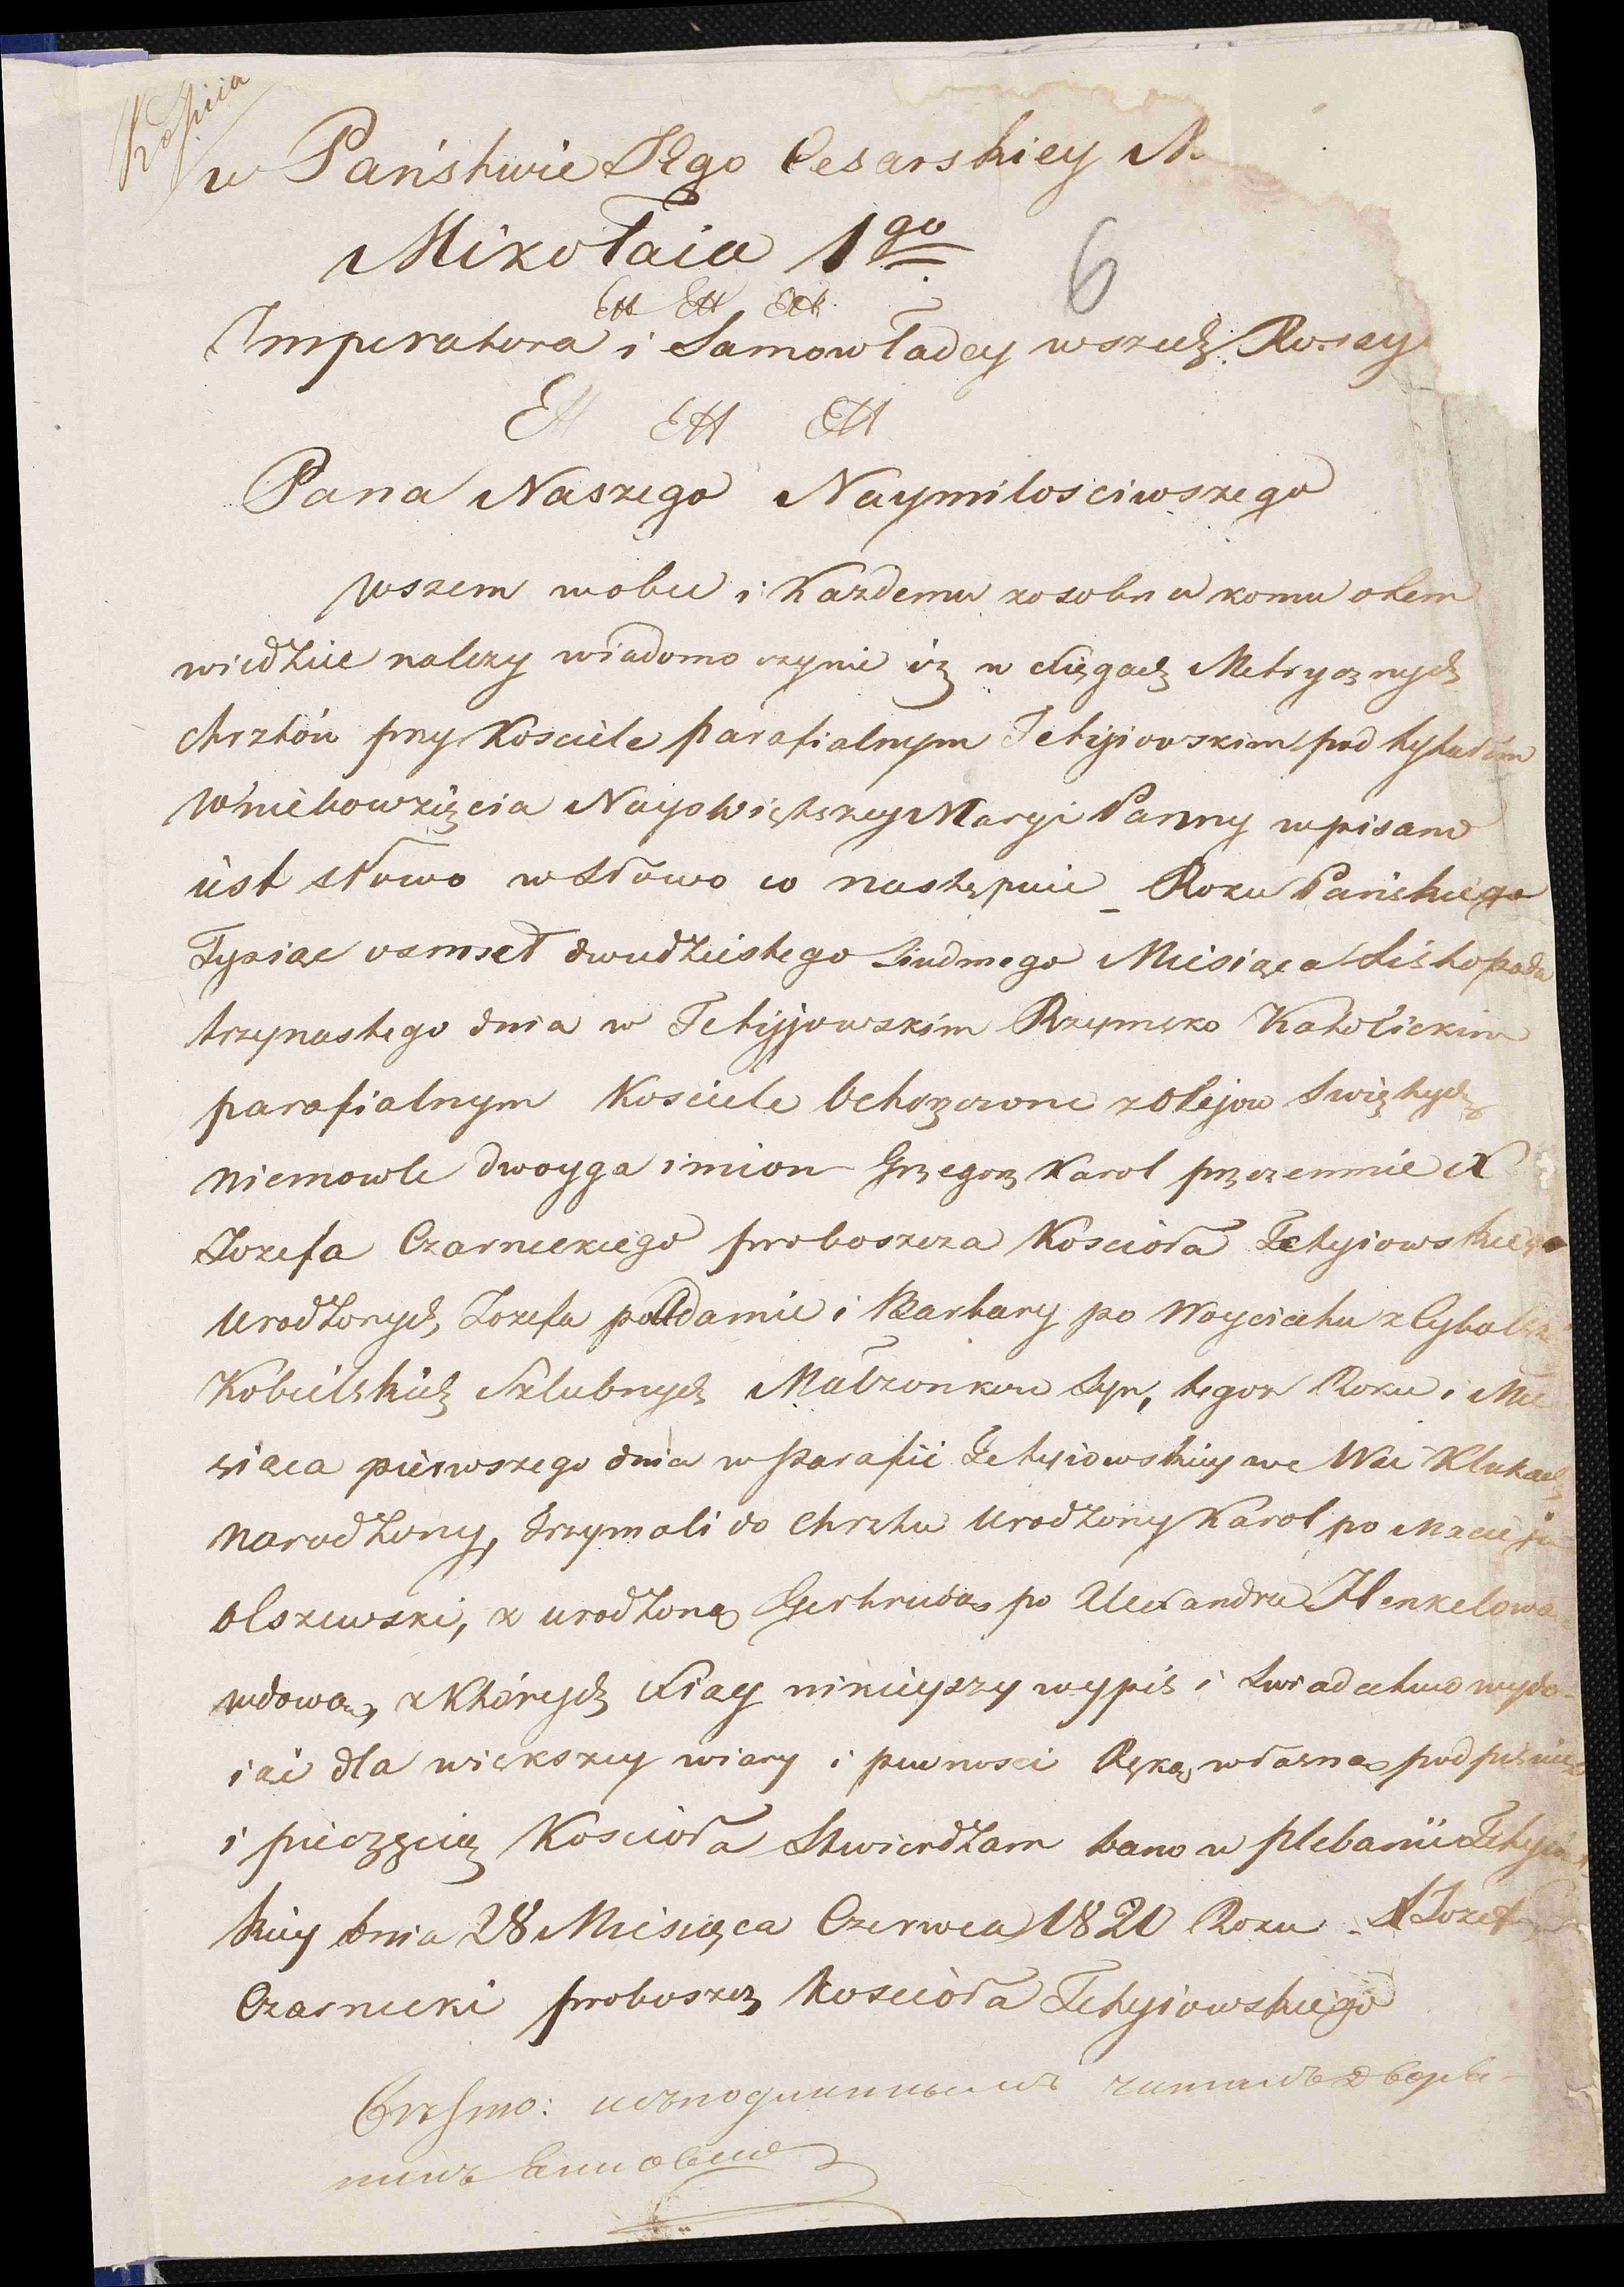 Kopiia
w Państwie JEgo Cesarskiey M.
Mikołaia 1go
Ett Ett Ett
6
Imperatora i Samowładcy wszech Rossy
Ett Ett Ett
Pana Naszego Naymilosciwszego
Wszem wobec i Każdemu zosobna komu otem
wiedzieć nalezy wiadomo czynie iż w xięgach Metrycznych
chrztów przy Kosciele parafialnym Tetyiowskim pod tytułem
Wniebowzięcia Nayswiętszey Maryi Panny wpisano
iest słowo wSłowo co następuie _ Roku Pańskiego
Tysiąc osmset dwudziestego Siudmego Miesiąca Listopada
trzynastego dnia w Tetyjowskim Rzymsko Katolickim
parafialnym Kosciele Ochrzczone zOlejow Swiętych
niemowle dwoyga imion Grzegorz Karol przezemnie X
Jozefa Czarneckiego proboszcza Kościoła Tetyiowskiego
Urodzonych Jozefa poAdamie i Barbary po Woyciechu z Cybulsk
Kobielskich Szlubnych Małzonkow Syn, tegoz Roku i Mie
siąca pierwszego dnia w Parafii Tetyiowskiey we Wsi Klukach
Narodzony, Trzymali do Chrztu Urodzony Karol po Macieju
Olszewski, z urodzoną Gertrudą po Alexandru Henkelową
wdową, z Których Xiąg ninieyszy wypis i Swiadectwo wyda-
iąc dla większey wiary i pewnosci Ręką własną podpisuię
i pieczęcią Kościoła Stwierdzam Dano w Plebanii Tetyiows
kiey dnia 28 Miesiąca Czerwca 1821 Roku _ X Jozef
Czarnecki proboszcz Kościoła Tetyiowskiego
съ подлиннымъ читалъ Дворя-
нинъ